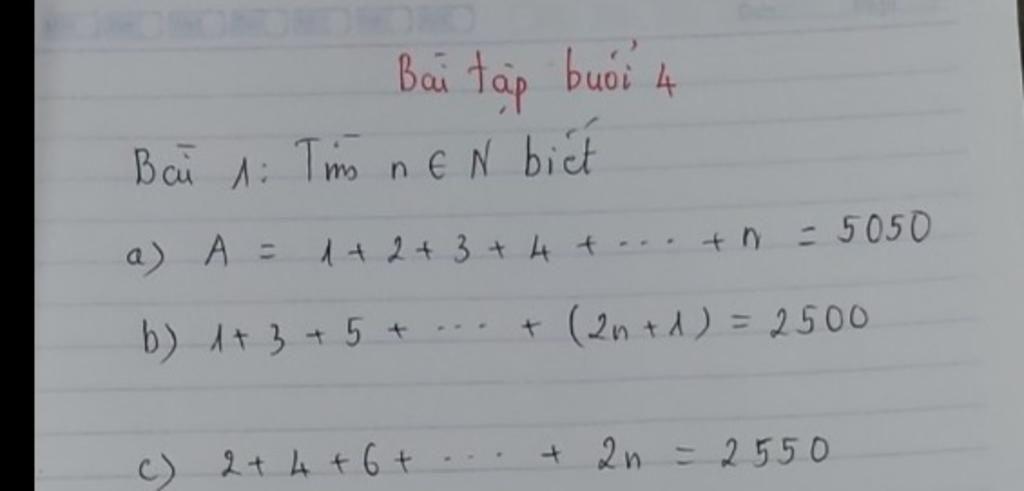 Bài tập buổi 4
Bài 1: Tìm n ∈ N biết
a) A = 1 + 2 + 3 + 4 + ... + n = 5050
b) 1 + 3 + 5 + ... + (2n + 1) = 2500
c) 2 + 4 + 6 + ... + 2n = 2550